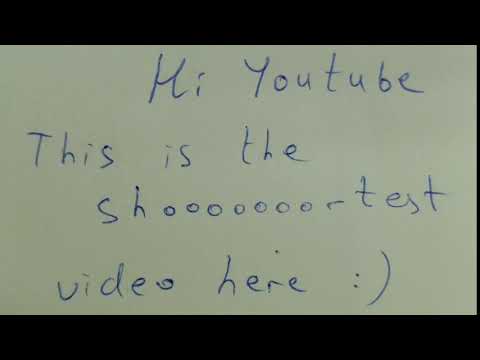 Hi Youtube
This is the
shooooooortest
video here :)